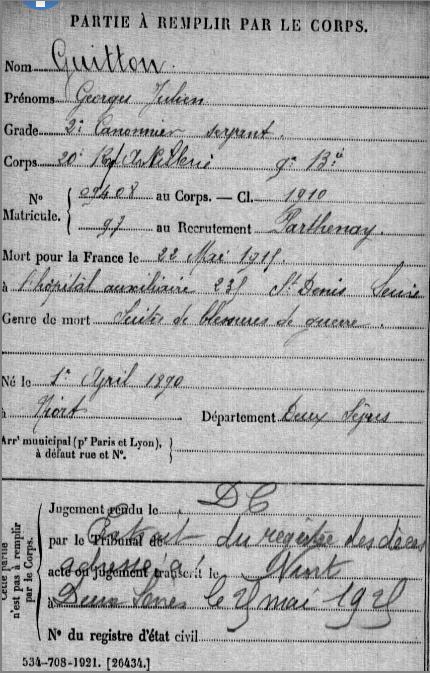 PARTIE À REMPLIR PAR LE CORPS.
Nom Guitton.
Prénoms Georges Julien
Grade 2e Canonnier servant.
Corps 20e Rgt Artillerie 9e Bie
No Matricule. 09408 au Corps. — Cl. 1910
97 au Recrutement Parthenay.
Mort pour la France le 22 Mai 1915.
à l'hôpital auxiliaire 235 St Denis Seine
Genre de mort Suites de blessures de guerre.
Né le 1er Avril 1890
à Niort Département Deux Sèvres
Arrt municipal (pr Paris et Lyon), à défaut rue et No.
Cette partie n'est pas à remplir par le Corps.
Jugement rendu le DC
par le Tribunal de Extrait du registre des décès
acte ou jugement transcrit le adressé à Niort
à Deux Sèvres le 25 mai 1925
No du registre d'état civil
534-708-1921. [26434.]